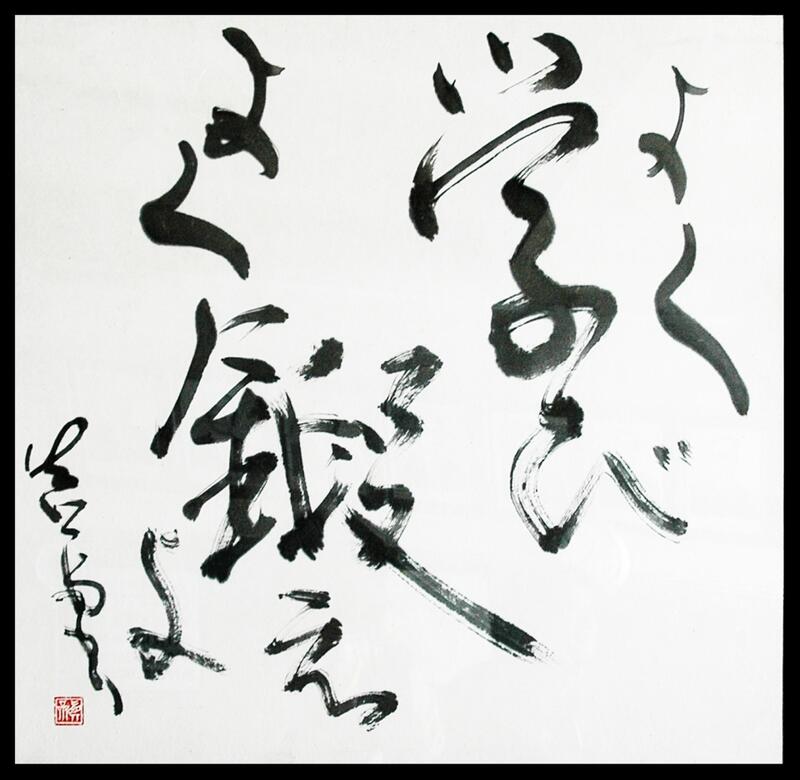 よく
学び
よく
鍛え
よ